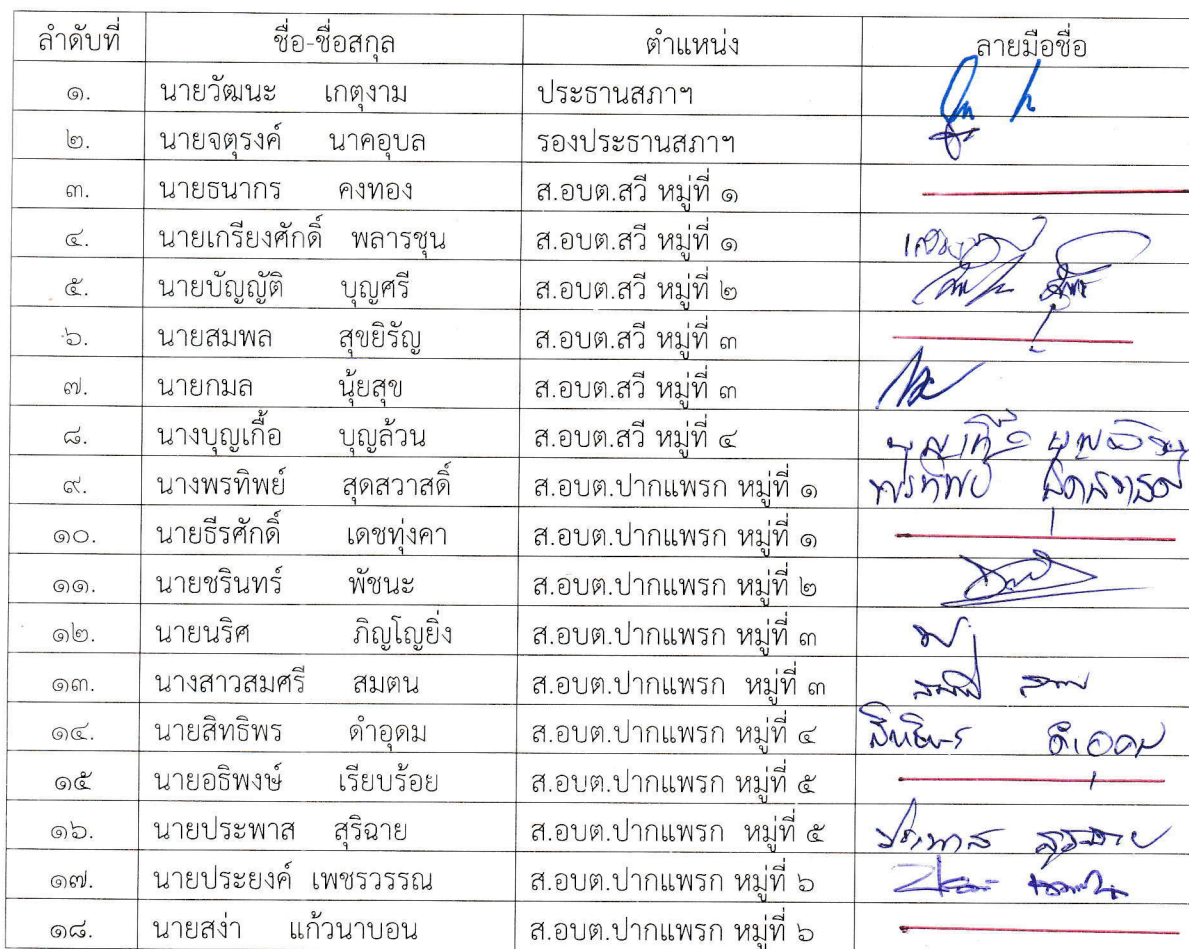 ลำดับที่ ชื่อ-ชื่อสกุล ตำแหน่ง ลายมือชื่อ
๑. นายวัฒนะ เกตุงาม ประธานสภาฯ
๒. นายจตุรงค์ นาคอุบล รองประธานสภาฯ
๓. นายธนากร คงทอง ส.อบต.สวี หมู่ที่ ๑
๔. นายเกรียงศักดิ์ พลารชุน ส.อบต.สวี หมู่ที่ ๑
๕. นายบัญญัติ บุญศรี ส.อบต.สวี หมู่ที่ ๒
๖. นายสมพล สุขยิรัญ ส.อบต.สวี หมู่ที่ ๓
๗. นายกมล นุ้ยสุข ส.อบต.สวี หมู่ที่ ๓
๘. นางบุญเกื้อ บุญล้วน ส.อบต.สวี หมู่ที่ ๔
๙. นางพรทิพย์ สุดสวาสดิ์ ส.อบต.ปากแพรก หมู่ที่ ๑ พรทิพย์
๑๐. นายธีรศักดิ์ เดชทุ่งคา ส.อบต.ปากแพรก หมู่ที่ ๑
๑๑. นายชรินทร์ พัชนะ ส.อบต.ปากแพรก หมู่ที่ ๒
๑๒. นายนริศ ภิญโญยิ่ง ส.อบต.ปากแพรก หมู่ที่ ๓
๑๓. นางสาวสมศรี สมตน ส.อบต.ปากแพรก หมู่ที่ ๓
๑๔. นายสิทธิพร ดำอุดม ส.อบต.ปากแพรก หมู่ที่ ๔ สิทธิพร
๑๕ นายอธิพงษ์ เรียบร้อย ส.อบต.ปากแพรก หมู่ที่ ๕
๑๖. นายประพาส สุริฉาย ส.อบต.ปากแพรก หมู่ที่ ๕ ประพาส สุริฉาย
๑๗. นายประยงค์ เพชรวรรณ ส.อบต.ปากแพรก หมู่ที่ ๖
๑๘. นายสง่า แก้วนาบอน ส.อบต.ปากแพรก หมู่ที่ ๖